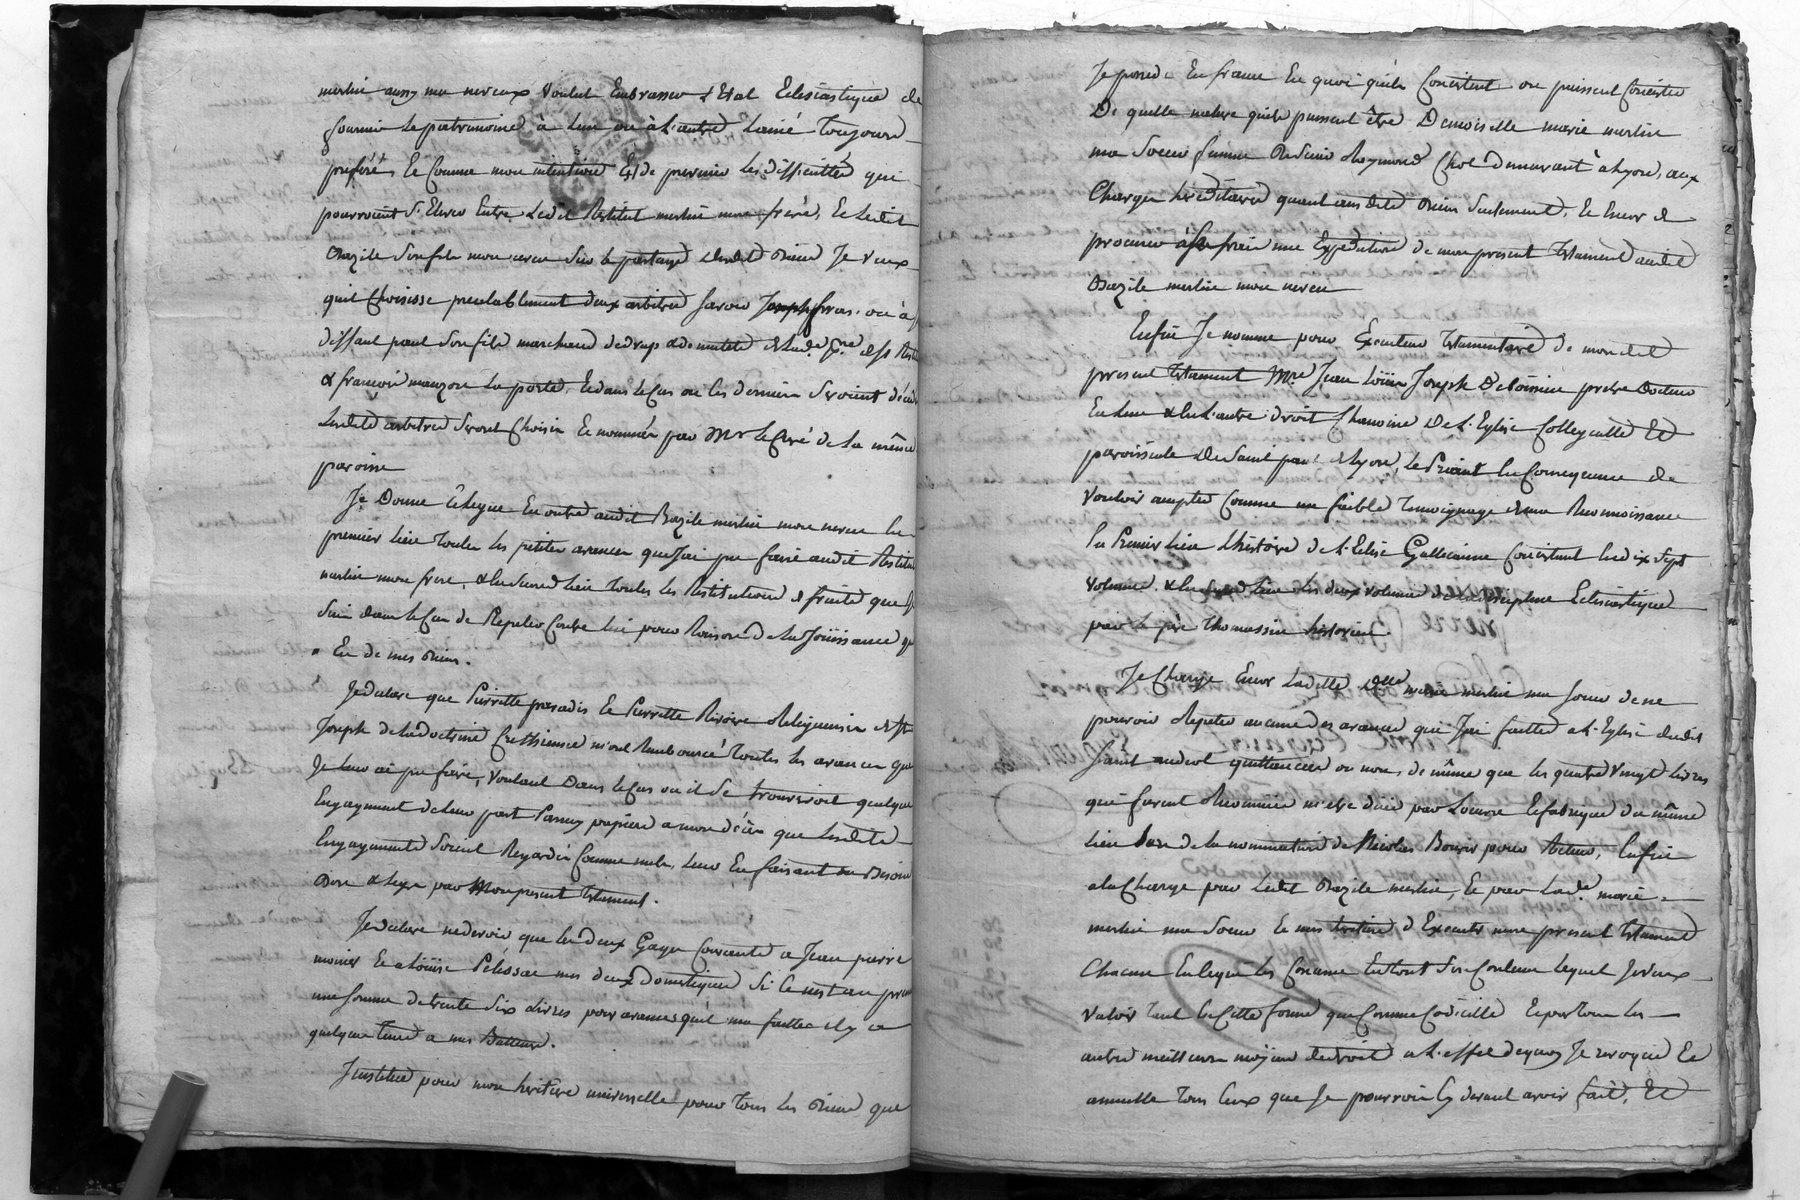 merlin aussy mes neveux voulut Embrasser l'Etat Eclesiastique de
fournir le patrimoine à l'un ou à l'autre L'ainé Toujours
preferé, Et Comme mon intention Est de prevenir les difficultés qui
pourroient S'Elever Entre Ledit merlin mon frere, Et Ledit
Bazile Son fils mon neveu Sur le partage desdits Biens Je veux
quil Choisisse prealablement deux arbitres Savoir Joseph ou à
deffaut paul Son fils marchand de drap
& françois la porte, Et dans le Cas ou Ces derniers Seroient
Lesdits arbitres Seront Choisis Et nommés par Mr le Curé de la même
paroisse
Je Donne & legue En outre audit Bazile merlin mon neveu En
premier lieu Toutes les petites avances que J'ai pu faire audit
merlin mon frere, & En Second lieu Toutes les Restitutions de fruits que
dans le Cas de Repeter Contre lui pour Raison de la Joüissance
Eu de mes Biens.
Je declare que Pierrette paradis Et Pierrette Riviere Religieuses de St
Joseph de la doctrine Crethienne m'ont Rembourcé Toutes les avances que
Je leur ai pu faire, voulant Dans le Cas ou il Se trouveroit quelque
Engagement de leur part Parmy mes papiers a mon décès que Lesdits
Engagements Soient Regardés Comme nuls, leur En faisant au Besoin
Don & legs par Mon present Testament.
Je declare ne devoir que les deux Gages Courants a Jean pierre
monier Et a Loüise Pelossе mes deux Domestiques Si Ce n'est au
une Somme de trente Six Livres pour avances quil m'a faittes il y a
quelque Tems a mes Batteurs.
J'institue pour mon heritiere universelle pour Tous les Biens que
Je possede En france En quoi quils Consistent ou puissent Consister
De quelle nature quils puissent être Demoiselle marie merlin
ma Soeur femme de Sieur Raymond Chol demeurant à Lyon, aux
Charges hereditaires quant aux dits Biens Seulement, Et Encore de
procurer à Ses frais une Expedition de mon present Testament audit
Bazile merlin mon neveu
Enfin Je nomme pour Executeur Testamentaire de mondit
present Testament Mre Jean Loüis Joseph Deboissieu pretre Docteur
En l'un & En l'autre droit Chanoine De L'Eglise Collegialle Et
paroissiale De Saint paul de Lyon, Le Priant En Consequence de
vouloir accepter Comme un faible Temoignage de ma Reconnoissance
En Premier lieu L'histoire de L'Eglise Gallicanne Consistant En dix Sept
volumes, & En Second lieu Les deux volumes de la discipline Eclesiastique
par le père Thomassin historien.
Je Charge Encore Ladite Dlle marie merlin ma Soeur de ne
pouvoir Repeter aucune des avances que J'ai faittes a L'Eglise dudit
Saint andeol quittancées ou non, de même que les quatre vingt livres
qui furent Reconnues m'etre dües par L'oeuvre Et fabrique du même
lieu lors de la nomination de Nicolas Bouvier pour Recteur, Enfin
a la Charge par Ledit Bazile merlin, Et par Lade marie
merlin ma Soeur Et mes heritiers d'Executer mon present Testament
Chacun En Ce qui les Concerne En tout Son Contenu lequel Je veux
valoir Tant En Cette forme que Comme Codicille Et par Tous les
autres meilleurs moyens de droit a L'effet de quoy Je revoque Et
annulle Tous Ceux que Je pourrois Cy devant avoir fait, Et